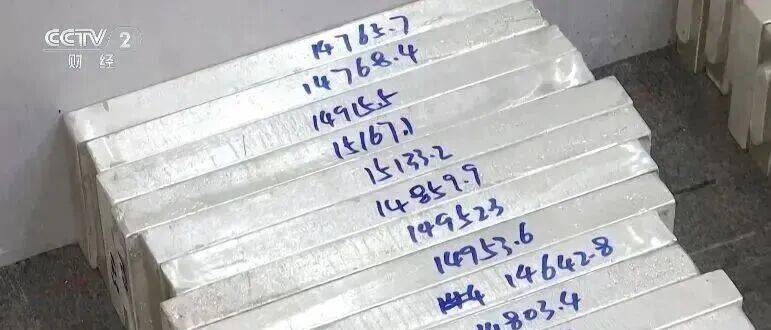 CCTV 2
财经
14763.7
14768.4
14915.5
15167.1
15133.2
14859.9
149523
14953.6
14642.8
14803.4